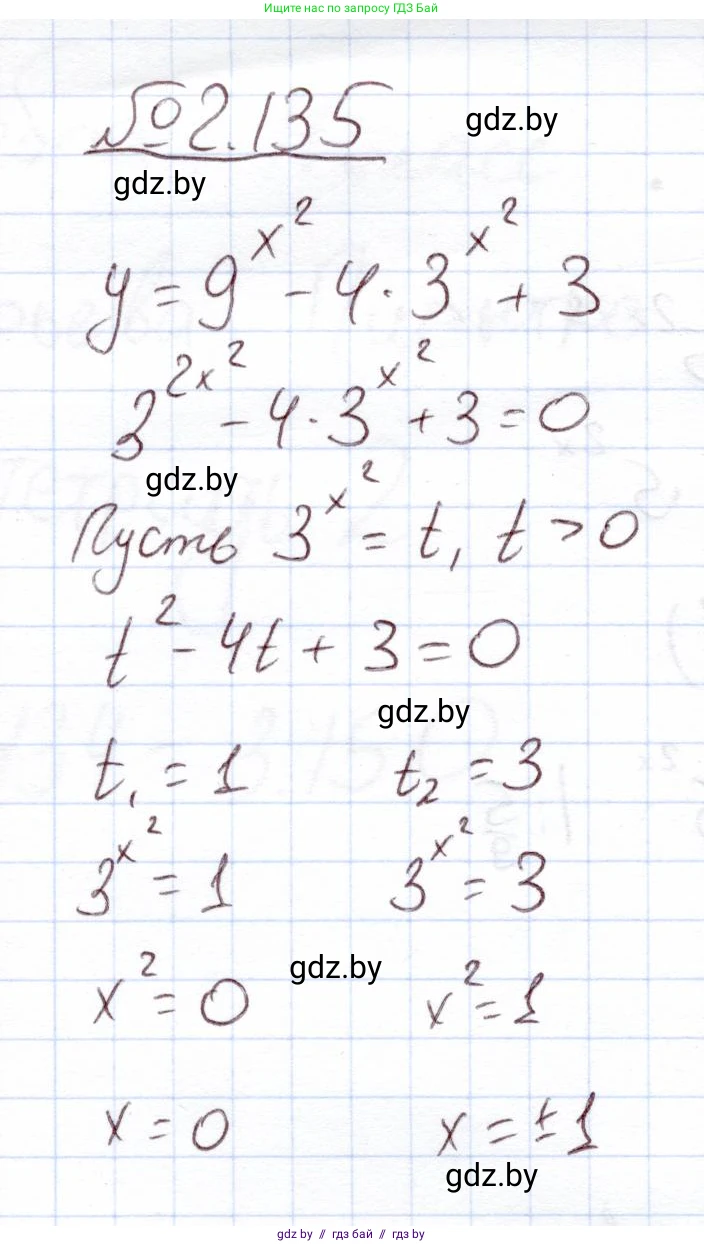 Ищите нас по запросу ГДЗ Бай
№2.135
gdz.by
gdz.by
y = 9^{x^2} - 4 · 3^{x^2} + 3
3^{2x^2} - 4 · 3^{x^2} + 3 = 0
gdz.by
Пусть 3^{x^2} = t, t > 0
t^2 - 4t + 3 = 0
gdz.by
t_1 = 1 t_2 = 3
3^{x^2} = 1 3^{x^2} = 3
gdz.by
x^2 = 0 x^2 = 1
x = 0 x = ±1
gdz.by
gdz by // гдз бай // gdz by